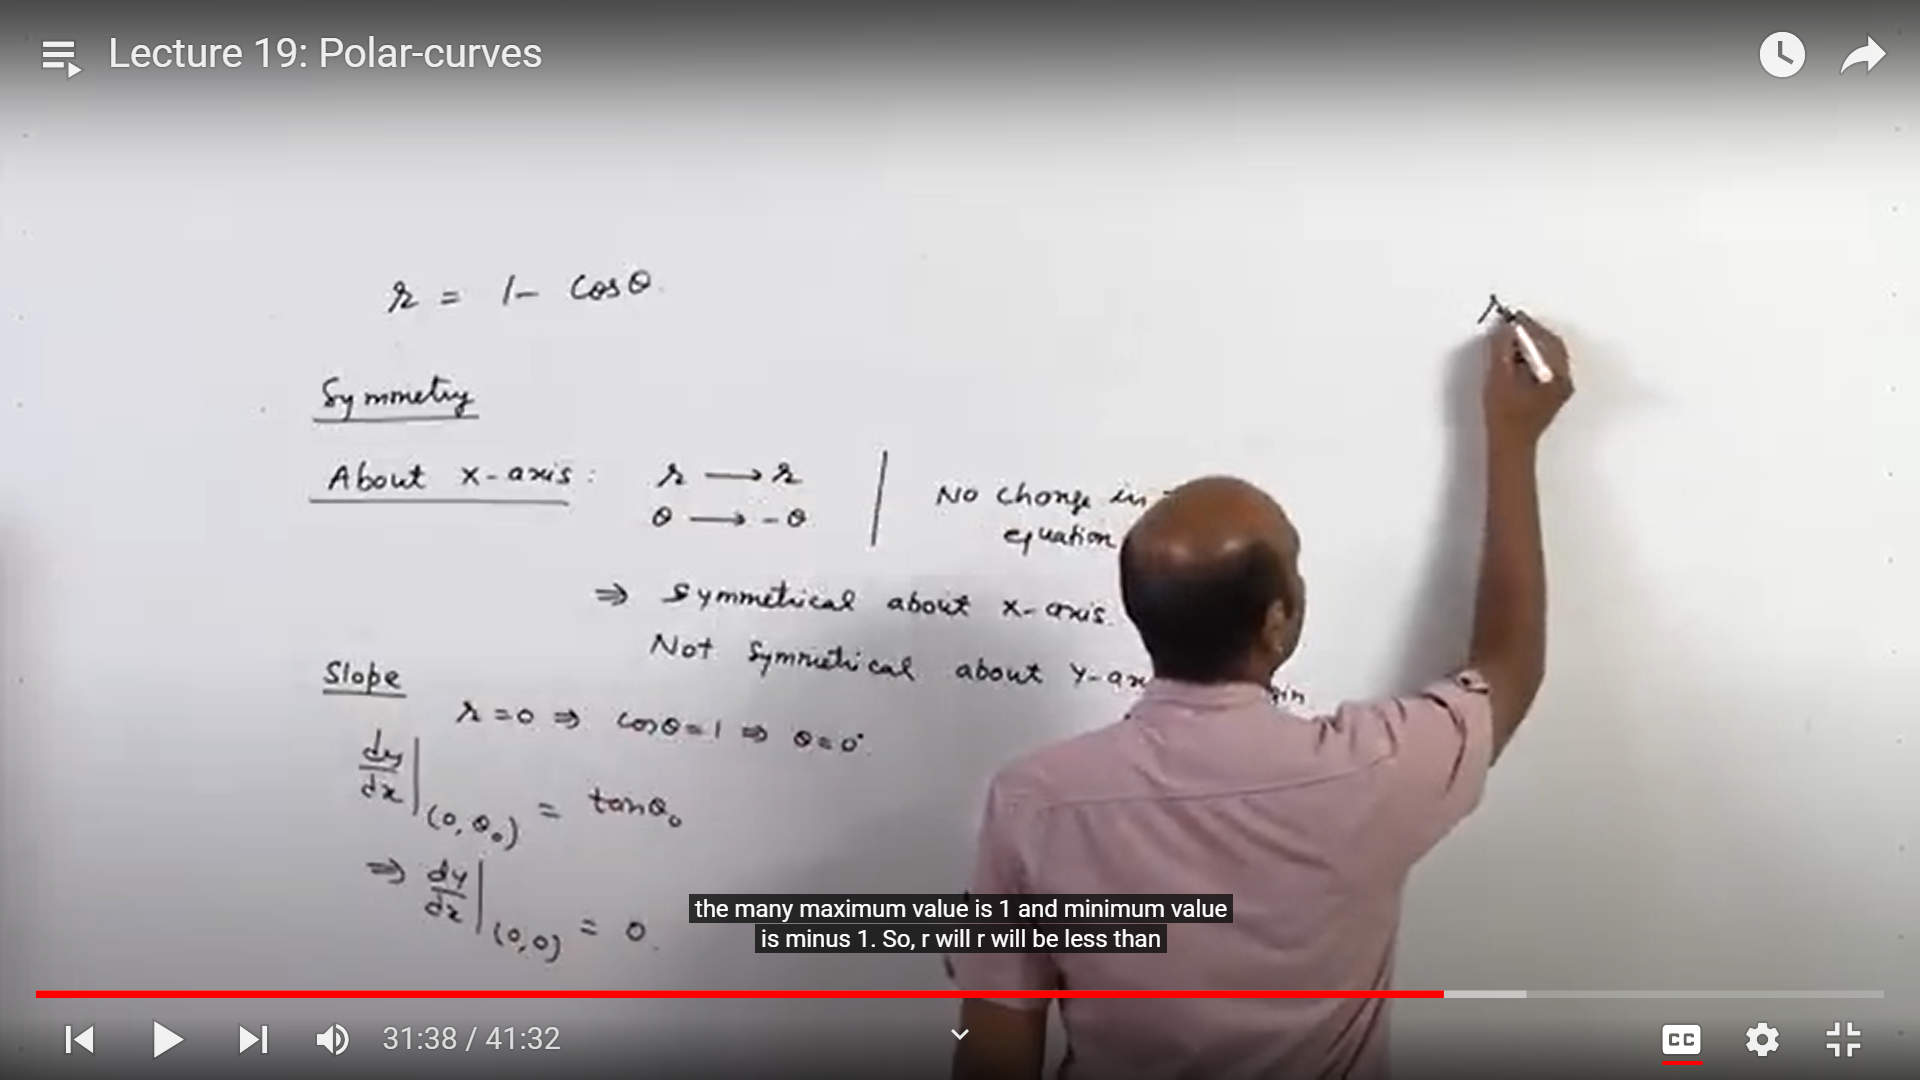 Lecture 19: Polar-curves
r = 1 - cosθ.
Symmetry
About x-axis: r → r
θ → -θ
No change in
equation
⇒ Symmetrical about x-axis.
Not Symmetrical about Y-ax
Slope
r = 0 ⇒ cosθ = 1 ⇒ θ = 0°.
dy/dx|(0, θ₀) = tanθ₀
⇒ dy/dx|(0,0) = 0.
r
the many maximum value is 1 and minimum value
is minus 1. So, r will r will be less than
31:38 / 41:32
CC